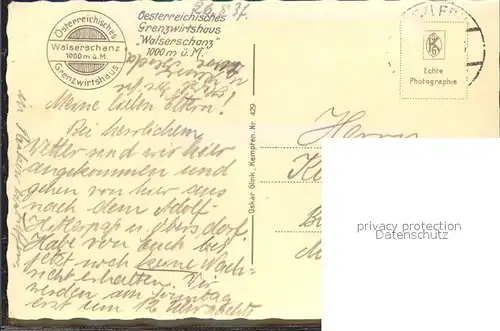 26.8.37.
Österreichisches
Walserschanz
1000 m ü.M.
Grenzwirtshaus
Oesterreichisches
Grenzwirtshaus
"Walserschanz"
1000 m ü.M.
Echte
Photographie
Meine lieben Eltern!
Bei herrlichem
Wetter sind wir hier
angekommen und
gehen von hier aus
nach dem Adolf-
Hitlerpaß u.
Habe von Euch bis
jetzt noch keine Nach-
richt erhalten. Wir
werden am Sonntag
erst um 12 Uhr
Oskar Glink, Kempten. Nr. 429
Herrn
privacy protection
Datenschutz